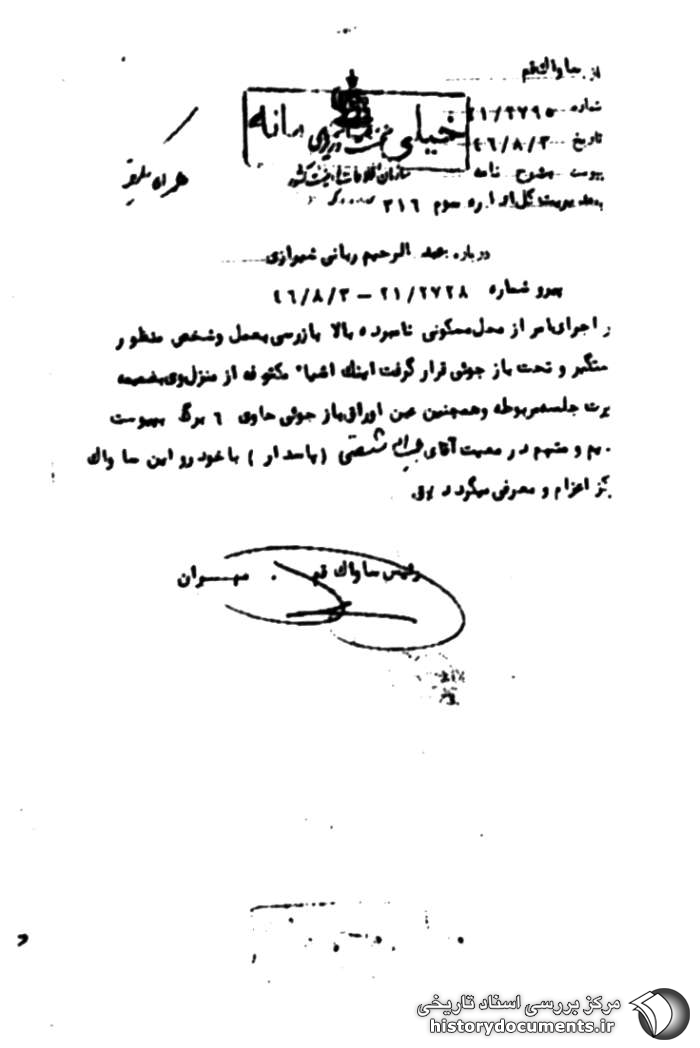 از ساواك قم
شماره ۲۱/۲۷۹۵
تاریخ ۴۶/۸/۳
پیوست بشرح نامه
خیلی محرمانه
سازمان اطلاعات و امنیت کشور
به مدیریت کل اداره سوم ۳۱۶
درباره عبدالرحیم ربانی شیرازی
پیرو شماره ۲۱/۲۷۲۸ – ۴۶/۸/۳
اجرای امر از محل مسکونی نامبرده بالا بازرسی بعمل و شخص منظور
دستگیر و تحت بازجوئی قرار گرفت اینك اشیاء مکشوفه از منزل وی بضمیمه
صورت جلسه مربوطه و همچنین عین اوراق بازجوئی حاوی ٦ برگ بپیوست
و متهم در معیت آقای (پاسدار) با خودرو این ساواك
اعزام و معرفی میگردد
رئیس ساواك قم . مهران
مرکز بررسی اسناد تاریخی
historydocuments.ir